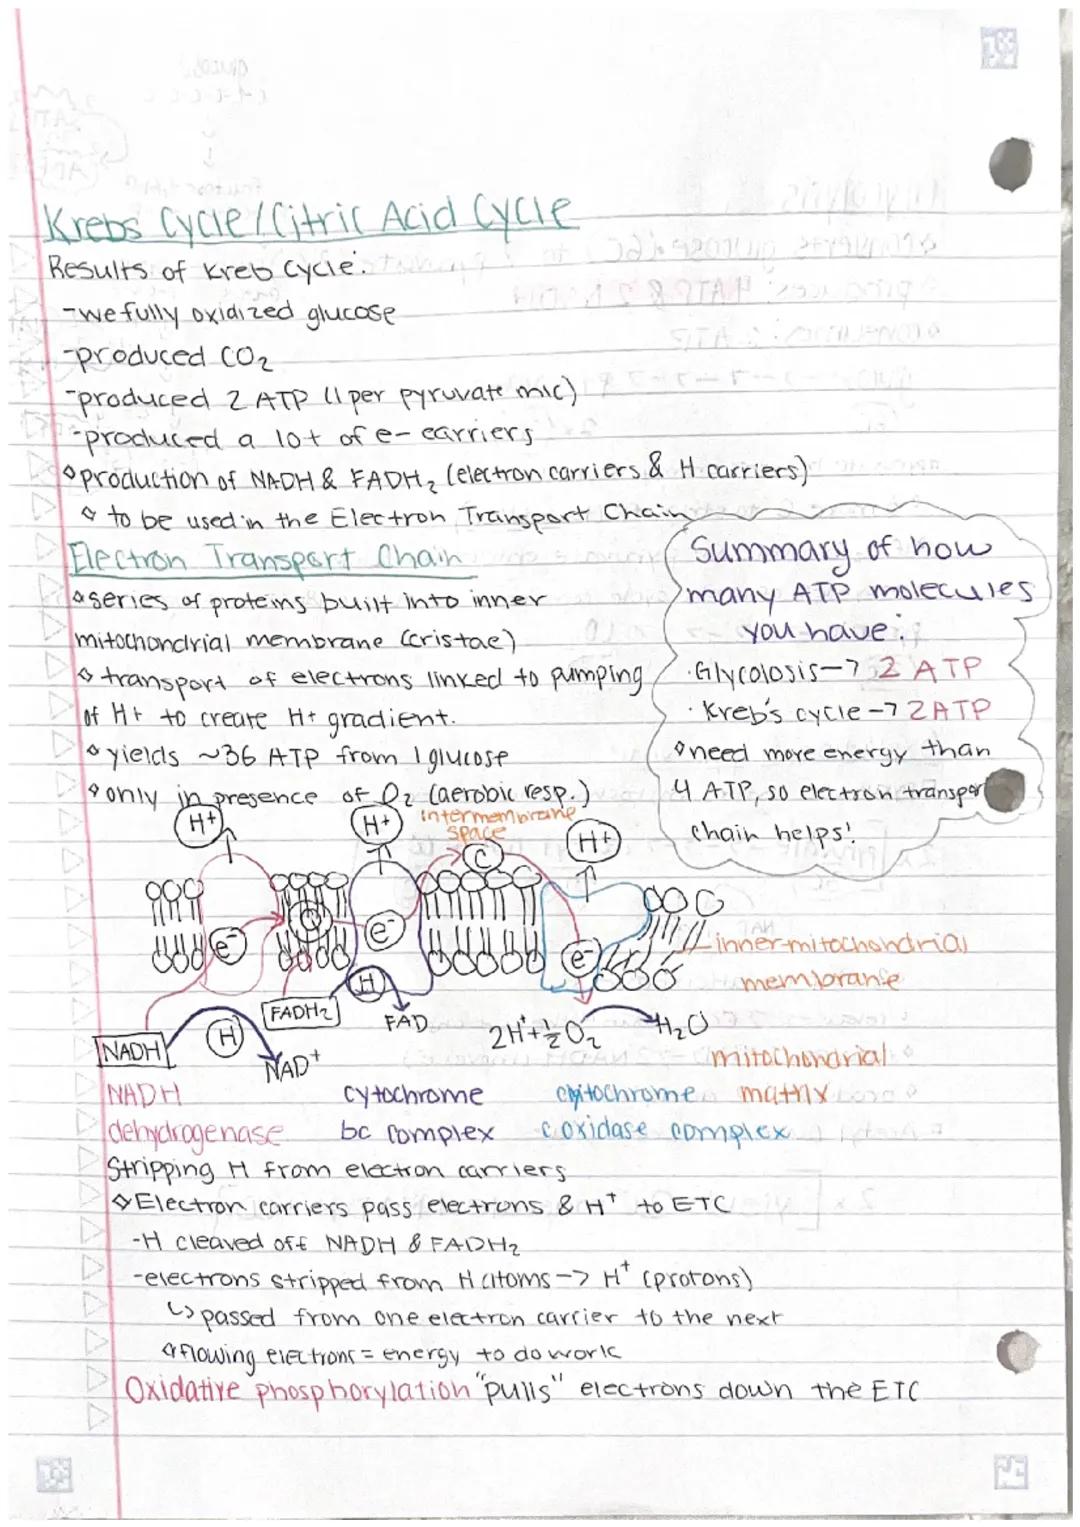 Krebs Cycle/Citric Acid Cycle
Results of Kreb Cycle:
-we fully oxidized glucose
-produced CO₂
-produced 2 ATP (1 per pyruvate mlc)
-produced a lot of e- carriers
⋄production of NADH & FADH₂ (electron carriers & H carriers)
⋄ to be used in the Electron Transport Chain
Electron Transport Chain
⋄series of proteins built into inner
mitochondrial membrane (cristae)
⋄ transport of electrons linked to pumping
of H+ to create H+ gradient.
⋄ yields ~36 ATP from 1 glucose
⋄ only in presence of O₂ (aerobic resp.)
Summary of how
many ATP molecules
you have:
·Glycolosis-> 2 ATP
·Kreb's cycle -> 2 ATP
⋄need more energy than
4 ATP, so electron transport
chain helps!
H+
H+
intermembrane
space
C
H+
e-
Q
e-
e-
inner-mitochondrial
membrane
NADH
H
NAD+
FADH₂
H
FAD
2H⁺+½O₂
H₂O
mitochondrial
matrix
NADH
dehydrogenase
cytochrome
bc complex
cytochrome
c oxidase complex
Stripping H from electron carriers
⋄Electron carriers pass electrons & H⁺ to ETC
-H cleaved off NADH & FADH₂
-electrons stripped from H atoms-> H⁺ (protons)
↳passed from one electron carrier to the next
⋄flowing electrons = energy to do work
Oxidative phosphorylation "pulls" electrons down the ETC